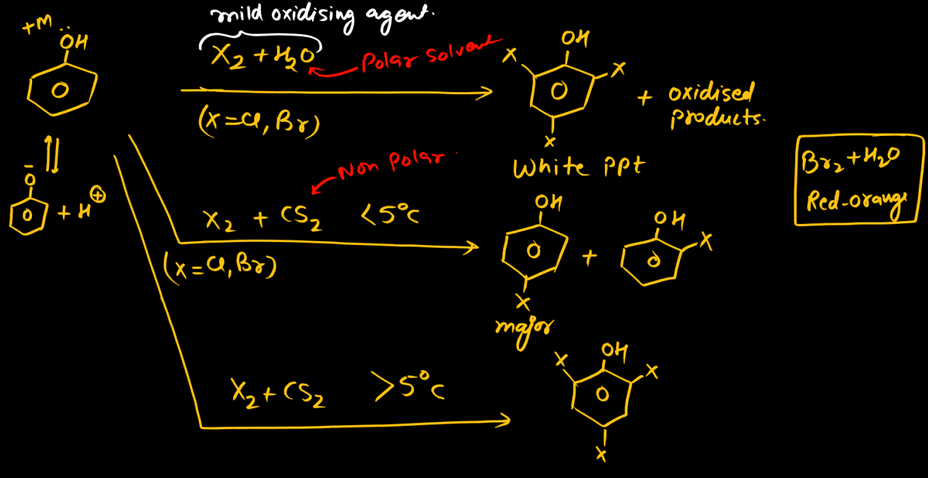 mild oxidising agent.
+M
ÖH
X₂ + H₂O
Polar Solvent
(X = Cl, Br)
OH
X
X
X
White PPt
+ oxidised
products.
Br₂ + H₂O
Red-orange
O⁻
+ H⊕
Non Polar.
X₂ + CS₂ <5°C
(X = Cl, Br)
OH
X
major
+
OH
X
X₂ + CS₂ >5°C
OH
X
X
X